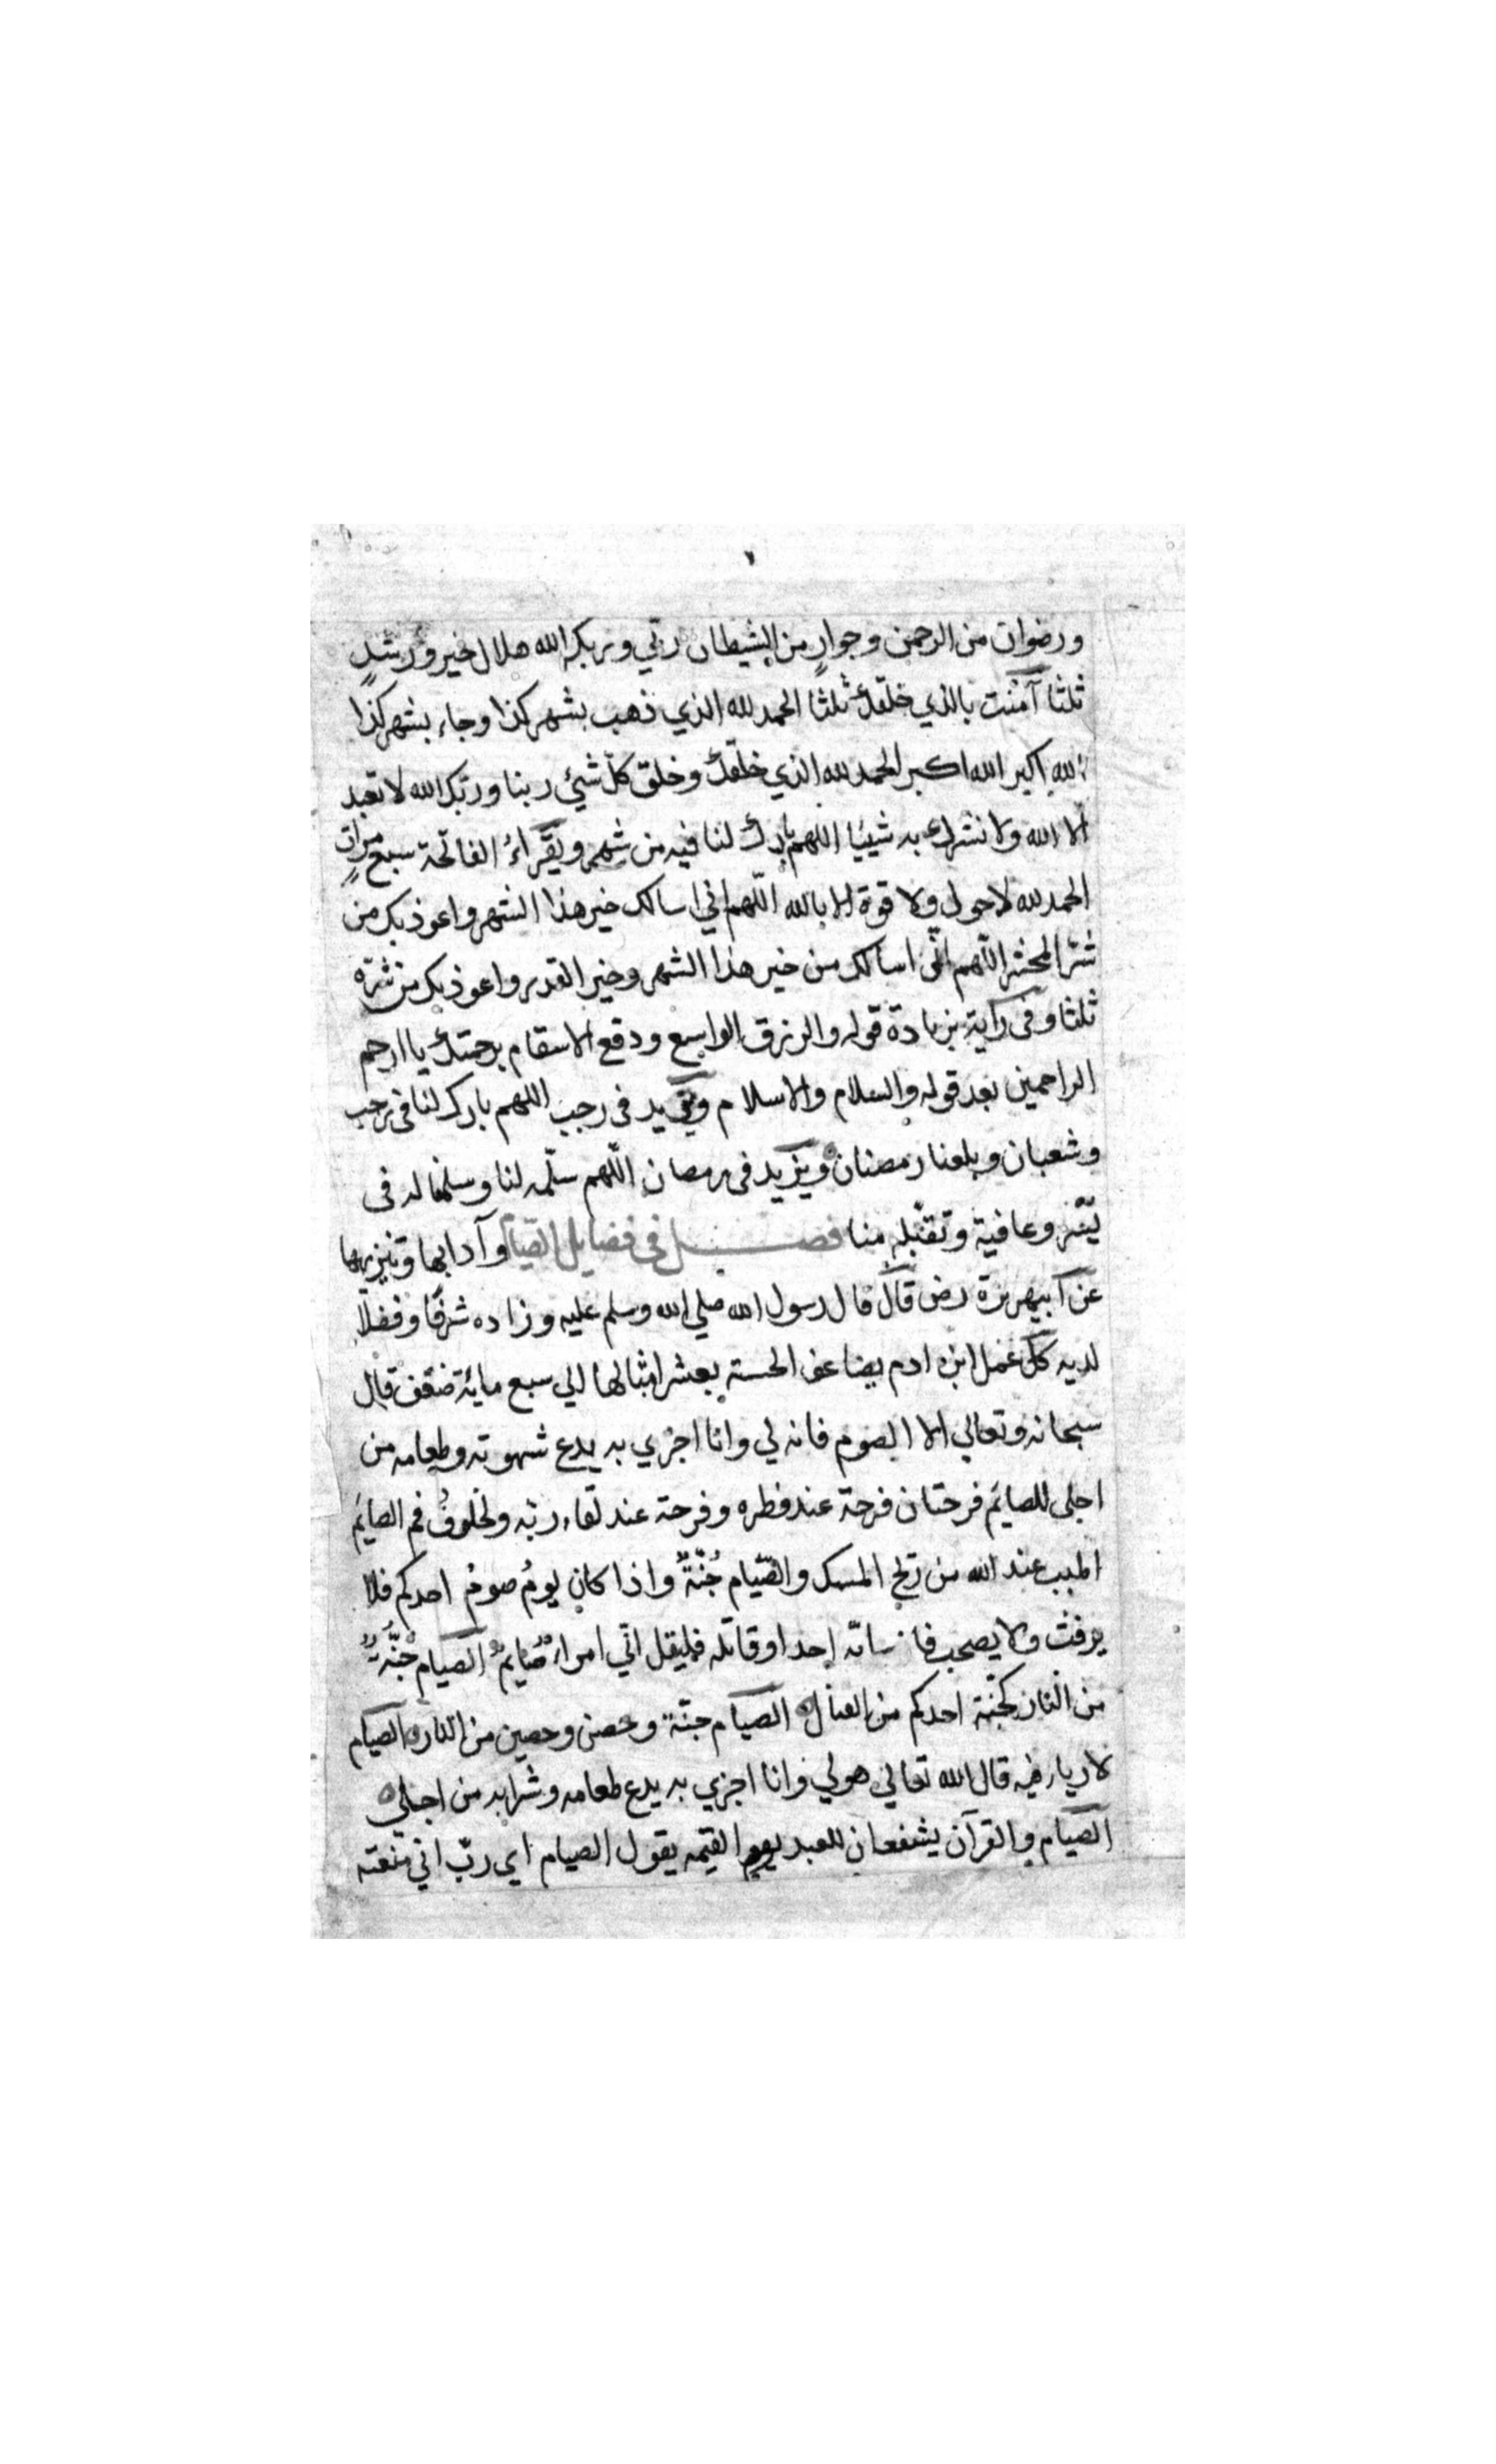 ورضوان من الرحمن وجوارٍ من الشيطان ربّي وربك الله هلال خير ورشدٍ
ثلثا آمنت بالذي خلقك ثلثا الحمد لله الذي ذهب بشهر كذا وجاء بشهر كذا
الله اكبر الله اكبر الحمد لله الذي خلقك وخلق كلّ شئي ربنا وربّك الله لا نعبد
الا الله ولا نشرك به شيئيا اللهم بارك لنا فيه من شهر ويقراءُ الفاتحة سبع مراتٍ
الحمد لله لاحول ولا قوة الا بالله اللّهم اني اسالك خير هذا الشهر واعوذ بك من
شرّ المحشر اللّهم انّى اسالك من خير هذا الشهر وخير القدر واعوذ بك من شرّه
ثلثا وفى رواية بزيادة قوله والرزق الواسع ودفع الاسقام برحمتك يا ارحم
الراحمين بعد قوله والسلام والاسلام ويزيد فى رجب اللهم بارك لنا فى رجب
وشعبان وبلغنا رمضنان ويزيد فى رمصان اللّهم سلّمه لنا وسلمنا له فى
يُسْر وعافية وتقبّله منا فصل فى فضايل الصّيام وآدابها وتنزيهها
عن ابيهريرة رض قال قال رسول الله صلي الله وسلم عليه وزاده شرفًا وفضلًا
لديه كلّ عمل ابن ادم يضاعف الحسنه بعشر امثالها الي سبع مائة ضعف قال
سبحانه وتعالي الا الصوم فانه لي وانا اجزي به يدع شهوته وطعامه من
اجلى للصايَم فرحتان فرحة عند فطره وفرحة عند لقاء ربّه ولخلوفُ فم الصايَم
اطيب عند الله من ريح المسك والصّيام جُنّةٌ واذا كان يومُ صومُ احدكم فلا
يرفث ولا يصخب فان سابّه احد او قاتله فليقل انّي امراءٌ صُايمٌ الصيام جُنّةٌ
من النار كجُنّة احدكم من القتال الصيام جنّة وحصن وحصين من النار الصيام
لا رياء فيه قال الله تعالي هو لي وانا اجزي به يدع طعامه وشرابه من اجلى
الصيام والقرآن يشفعان للعبد يوم القيمه يقول الصيام اي ربّ اني منعته